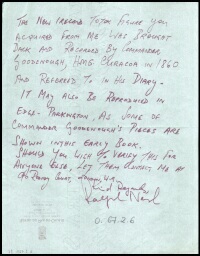 The New Ireland Totem Figure you
acquired from me was brought
back and recorded by Commander
Goodenough, HMS Curacoa in 1860
and referred to in his diary.
It may also be reproduced in
Edge-Partington, as some of
Commander Goodenough's pieces are
shown in this early book.
Should you wish to verify this for
anyone else, let them contact me at
Court, London, W.8.
Kind Regards
Ralph
0.67.2.6